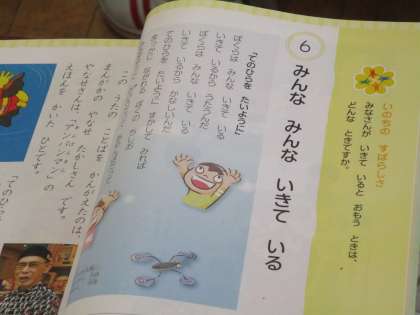 いのちの すばらしさ
みなさんが いきて いると おもう ときは、
どんな ときですか。
6
みんな みんな いきて いる
てのひらを たいように
ぼくらは みんな いきて いる
いきて いるから うたうんだ
ぼくらは みんな いきて いる
いきて いるから かなしいんだ
てのひらを たいように すかして みれば
この うたの ことばを かんがえたのは、
まんがかの やなせ たかしさん です。
やなせさんは、「アンパンマン」の
えほんを かいた ひとです。
「てのひ